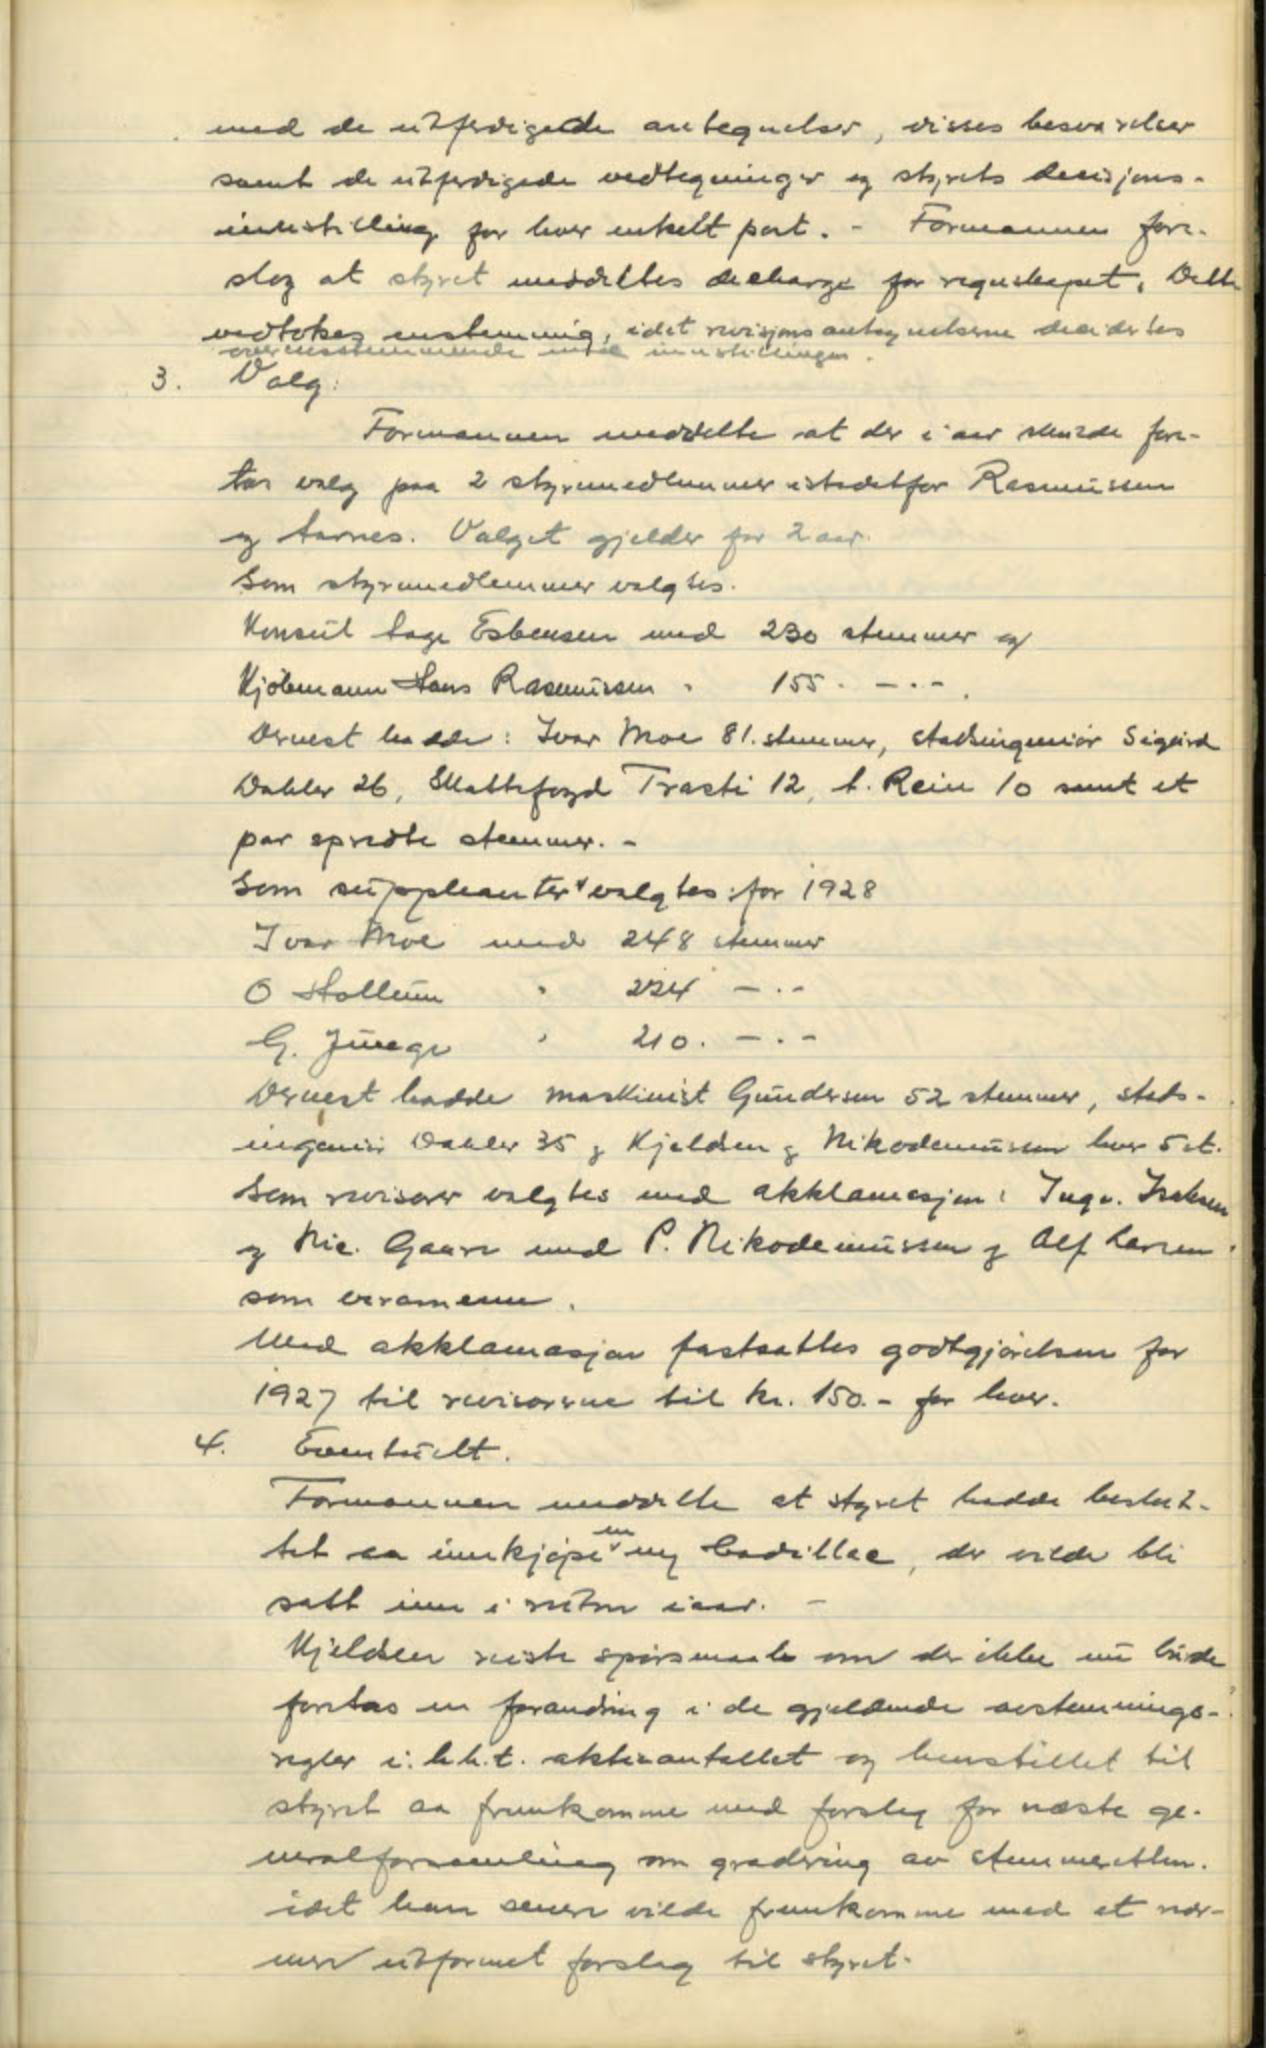 med de utferdigede antegnelser, disses besvarelser
samt de utferdigede vedtegninger og styrets desisjons-
innstilling for hver enkelt post. - Formannen fore-
slog at styret meddeltes decharge for regnskapet. Dette
vedtokes enstemmig, idet revisjonsantegnelserne desidertes
overensstemmende med innstillingen.
3. Valg:
Formannen meddelte at der i aar skulde fore-
tas valg paa 2 styremedlemmer istedetfor Rasmussen
og Aarnes. Valget gjelder for 2 aar.
Som styremedlemmer valgtes.
Konsul Aage Esbensen med 230 stemmer og
Kjøbmann Hans Rasmussen " 155. -.-.
Dernest hadde: Ivar Moe 81. stemmer, stadsingeniør Sigurd
Dahler 26, Skattefogd Trasti 12, A. Rein 10 samt et
par spredte stemmer. -
Som suppleanter valgtes: for 1928
Ivar Moe med 248 stemmer
O Hollum " 224 -.-
G. Junge " 210. -.-
Dernest hadde maskinist Gundersen 52 stemmer, stads-
ingeniør Dahler 35 og Kjeldsen og Nikodemussen hver 5 st.
Som revisorer valgtes med akklamasjon: Ingv. Isaksen
og Nic. Gaare med P. Nikodemussen og Alf Larsen
som varamenn.
Med akklamasjon fastsattes godtgjørelsen for
1927 til revisorerne til kr. 150.- for hver.
4. Eventuelt.
Formannen meddelte at styret hadde beslut-
tet aa innkjøpe en ny Cadillac, der vilde bli
satt inn i ruten iaar. -
Kjeldsen reiste spørsmaale om der ikke nu burde
foretas en forandring i de gjeldende avstemnings-
regler i.h.h.t. aktieantallet og henstillet til
styret aa fremkomme med forslag for næste ge-
neralforsamling om gradering av stemmeretten.
idet han senere vilde fremkomme med et nær-
mere utformet forslag til styret.